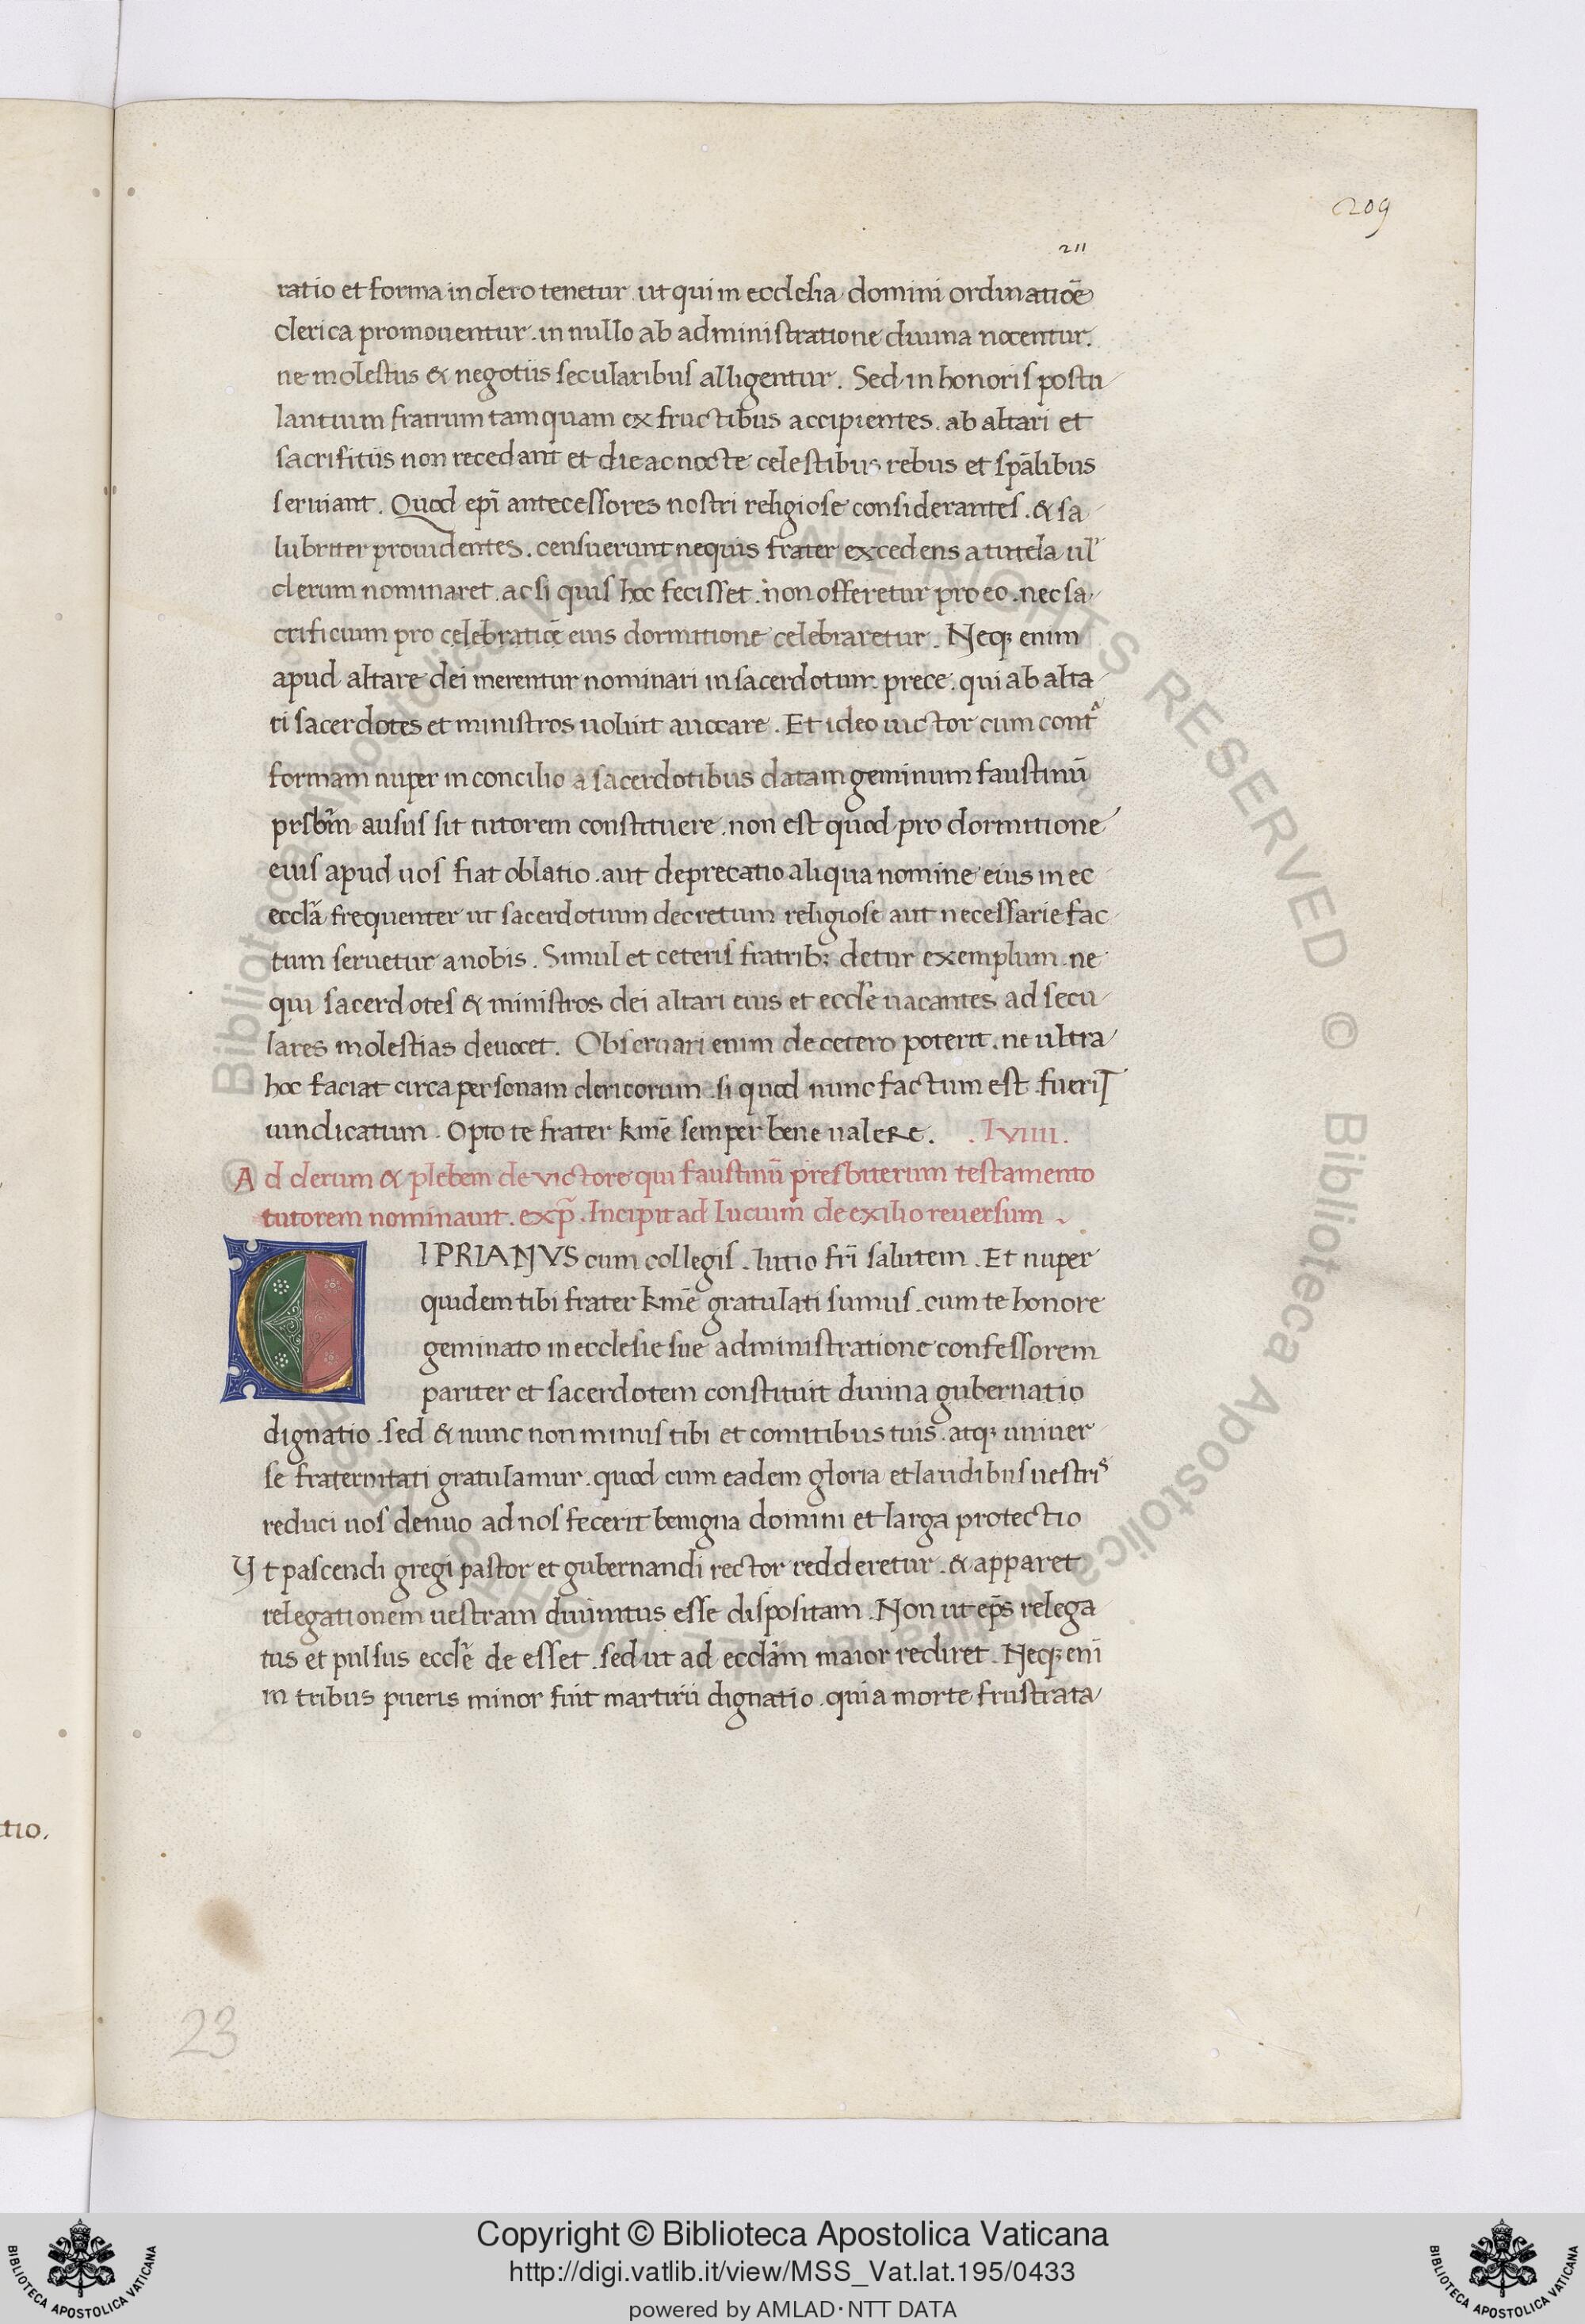 209
211
ratio et forma in clero tenetur. ut qui in ecclesia domini ordinatiōe
clerica promouentur. in nullo ab administratione diuina nocentur.
ne molestiis & negotiis secularibus alligentur. Sed in honoris postu
lantium fratrum tamquam ex fructibus accipientes. ab altari et
sacrifitiis non recedant et die ac nocte celestibus rebus et sp̄alibus
seruiant. Quod ep̄i antecessores nostri religiose considerantes. & sa
lubriter prouidentes. censuerunt nequis frater excedens a tutela ul'
clerum nominaret. ac si quis hoc fecisset. non offeretur pro eo. nec sa
crificium pro celebratiōe eius dormitione celebraretur. Neq; enim
apud altare dei merentur nominari in sacerdotum prece. qui ab alta
ri sacerdotes et ministros uoluit auocare. Et ideo uictor cum cont^a
formam nuper in concilio a sacerdotibus datam geminum faustinū
prsbm̄ ausus sit tutorem constituere. non est quod pro dormitione
eius apud uos fiat oblatio. aut deprecatio aliqua nomine eius in ec
eccl̄a frequenter ut sacerdotum decretum religiose aut necessarie fac
tum seruetur a nobis. Simul et ceteris fratrib; detur exemplum. ne
qui sacerdotes & ministros dei altari eius et eccl̄e uacantes ad secu
lares molestias deuocet. Obseruari enim de cetero poterit. ne ultra
hoc faciat circa personam clericorum. si quod nunc factum est. fuerit
uindicatum. Opto te frater km̄e semper bene ualere. . lviiii.
Ad clerum & plebem de victore qui faustinū presbiterum testamento
tutorem nominauit. exp̄. Incipit ad lucium de exilio reuersum
CIPRIANVS cum collegis. lutio fr̄i salutem. Et nuper
quidem tibi frater kme̅ gratulati sumus. cum te honore
geminato in ecclesie sue administratione confessorem
pariter et sacerdotem constituit diuina gubernatio
dignatio. sed & nunc non minus tibi et comitibus tuis. atq; uniuer
se fraternitati gratulamur. quod cum eadem gloria et laudibus uestris
reduci uos denuo ad nos fecerit benigna domini et larga protectio
Vt pascendi gregi pastor et gubernandi rector redderetur. & apparet
relegationem uestram diuinitus esse dispositam. Non ut ep̄s relega
tus et pulsus eccl̄e de esset. sed ut ad eccl̄am maior rediret. Neq; eni̅
in tribus pueris minor fuit martirii dignatio. quia morte frustrata
tio.
23
Biblioteca Apostolica Vaticana ALL RIGHTS RESERVED © Biblioteca Apostolica Vaticana ALL RIGHTS RESERVED ©
BIBLIOTECA APOSTOLICA VATICANA
Copyright © Biblioteca Apostolica Vaticana
http://digi.vatlib.it/view/MSS_Vat.lat.195/0433
powered by AMLAD·NTT DATA
BIBLIOTECA APOSTOLICA VATICANA